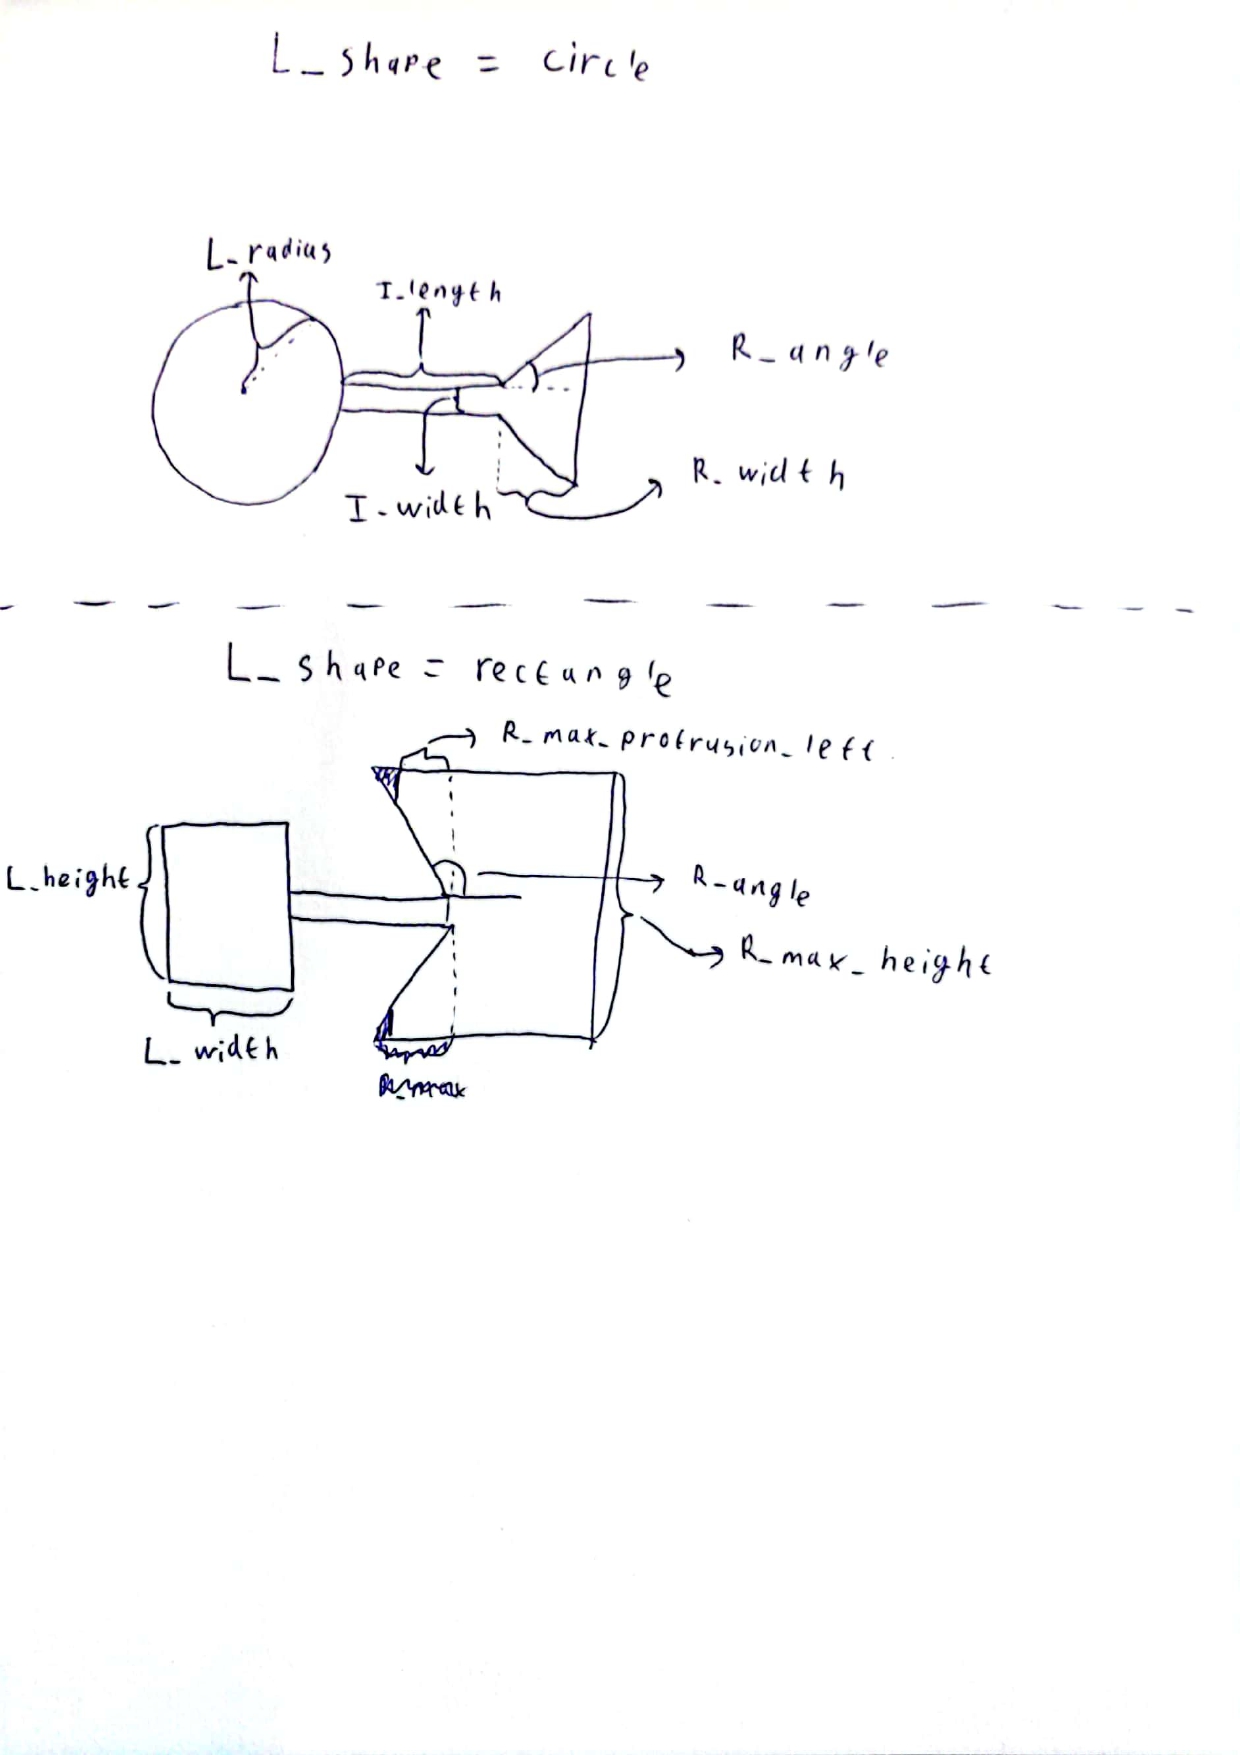 L_shape = circle
L_radius
I_length
R_angle
R_width
I_width
L_shape = rectangle
R_max_protrusion_left
L_height
R_angle
R_max_height
L_width